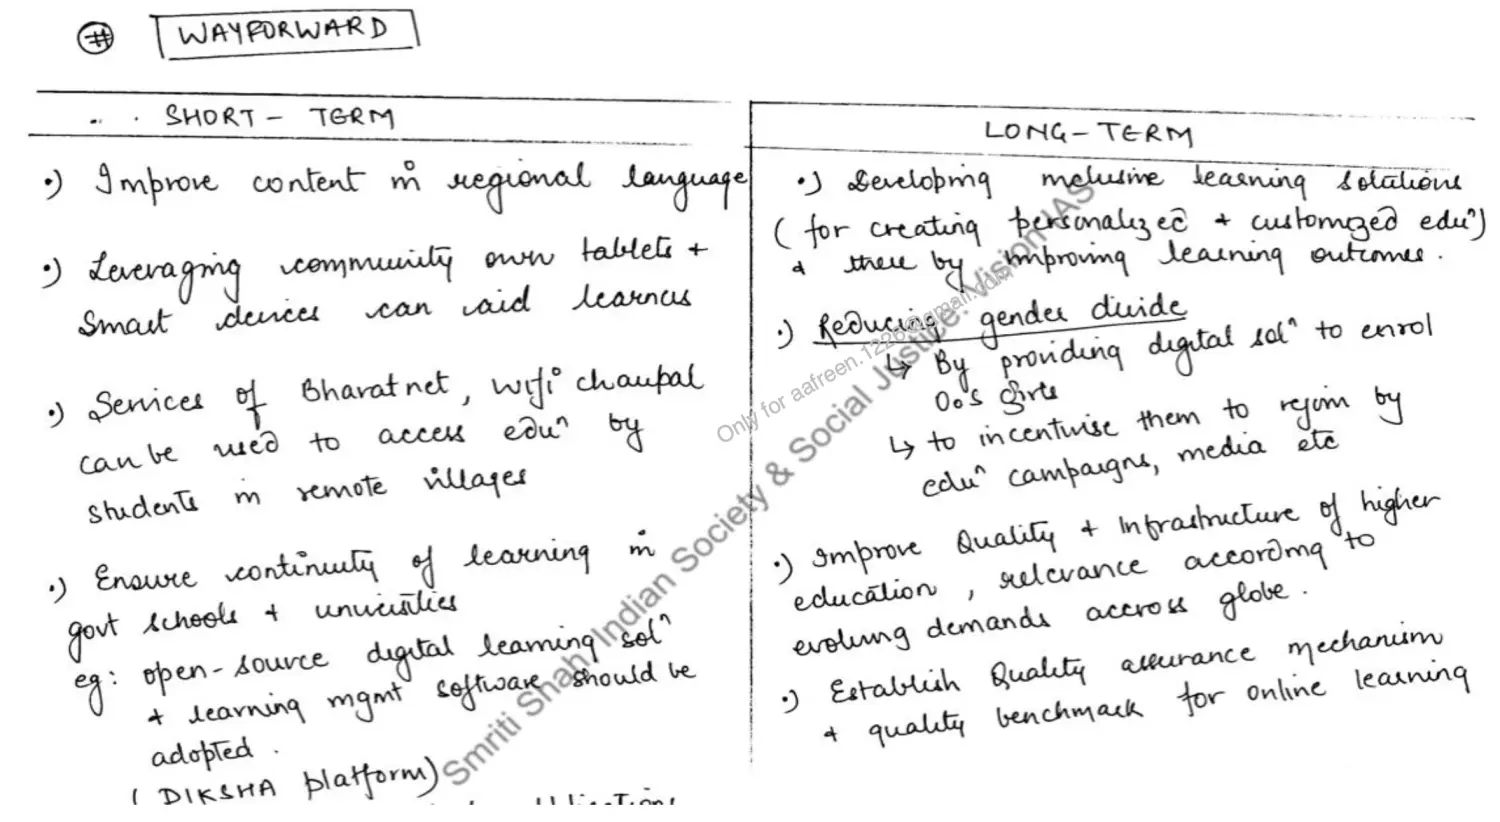 # WAYFORWARD
SHORT - TERM
•) Improve content in regional language
•) Leveraging community own tablets +
Smart devices can aid learners
•) Services of Bharatnet, wifi chaupal
can be used to access eduⁿ by
students in remote villages
•) Ensure continuity of learning in
govt schools + universities
eg: open-source digital learning solⁿ
+ learning mgmt software should be
adopted.
(DIKSHA platform)
LONG-TERM
•) Developing inclusive learning solutions
(for creating personalized + customized eduⁿ)
+ there by improving learning outcomes.
•) Reducing gender divide
↳ By providing digital solⁿ to enrol
OoS girls
↳ to incentivise them to rejoin by
eduⁿ campaigns, media etc
•) Improve Quality + Infrastructure of higher
education, relevance according to
evolving demands accross globe.
•) Establish Quality assurance mechanism
+ quality benchmark for online learning
Only for aafreen.1226@gmail.com
Smriti Shah, Indian Society & Social Justice, Vision IAS